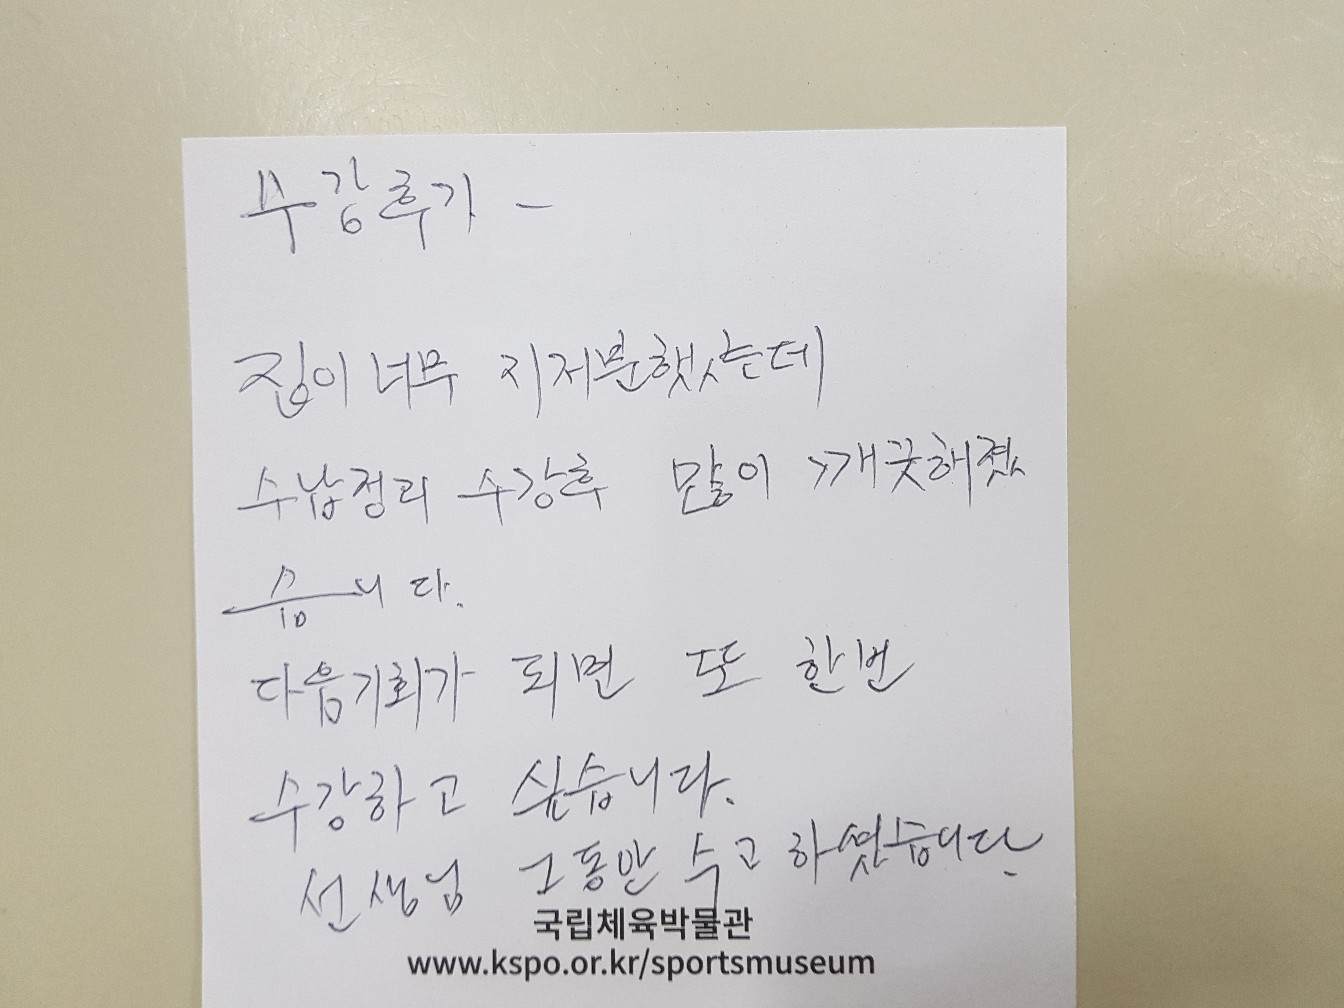 수강후기 -
집이 너무 지저분했었는데
수납정리 수강후 많이 깨끗해졌
습니다.
다음기회가 되면 또 한번
수강하고 싶습니다.
선생님 그동안 수고 하셨습니다.
국립체육박물관
www.kspo.or.kr/sportsmuseum